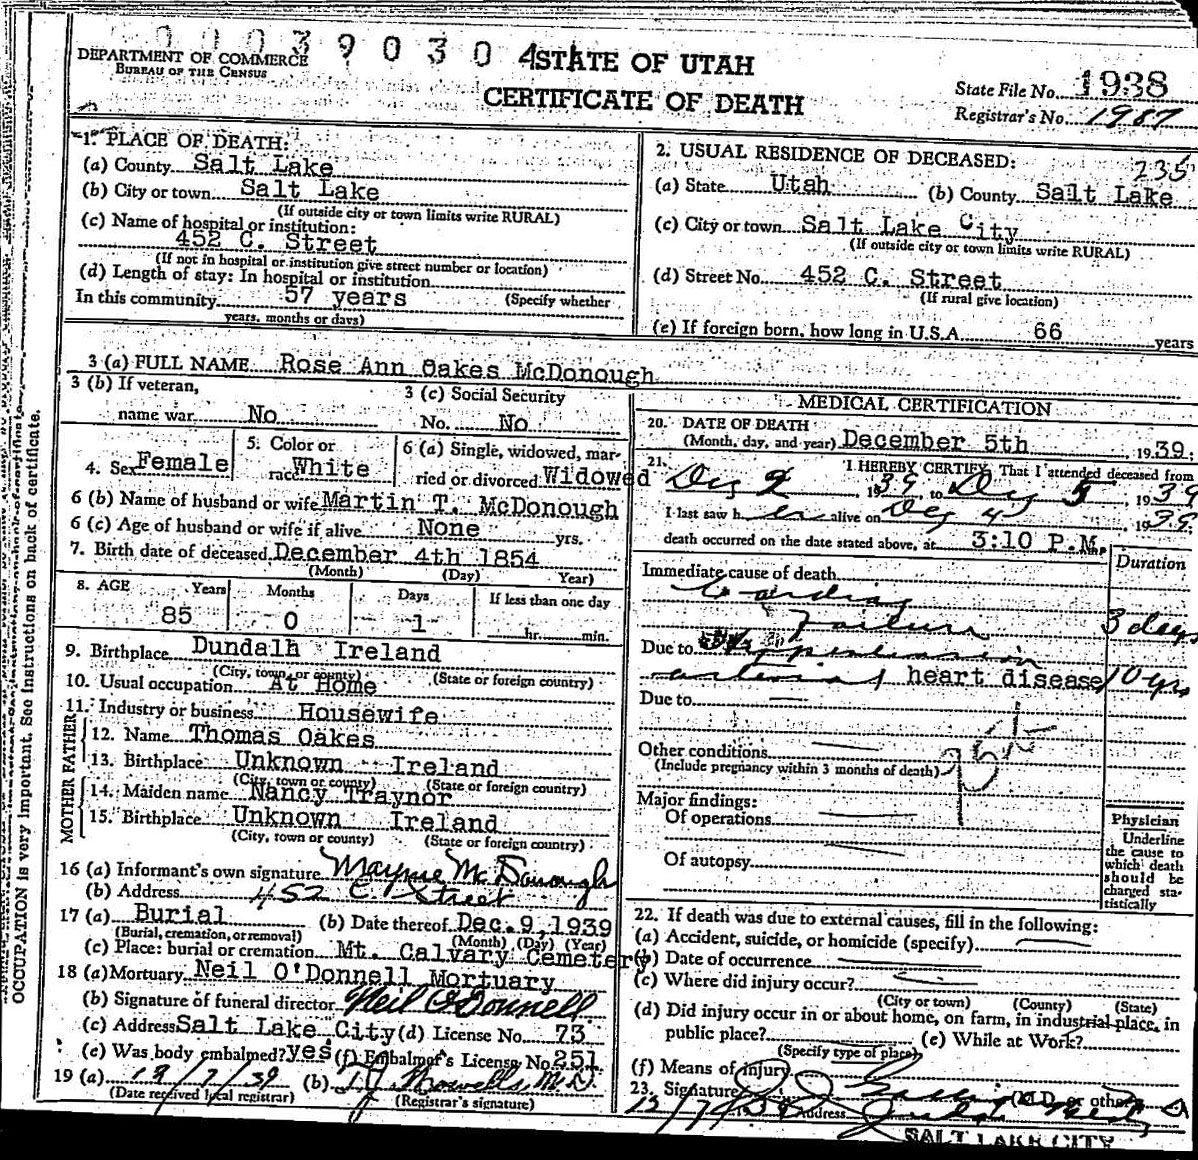 00039030 4
DEPARTMENT OF COMMERCE
BUREAU OF THE CENSUS
STATE OF UTAH
CERTIFICATE OF DEATH
State File No. 1938
Registrar's No. 1987
1. PLACE OF DEATH:
(a) County Salt Lake
(b) City or town Salt Lake
(If outside city or town limits write RURAL)
(c) Name of hospital or institution:
452 C. Street
(If not in hospital or institution give street number or location)
(d) Length of stay: In hospital or institution
In this community 57 years (Specify whether
years, months or days)
2. USUAL RESIDENCE OF DECEASED:
235
(a) State Utah (b) County Salt Lake
(c) City or town Salt Lake City
(If outside city or town limits write RURAL)
(d) Street No. 452 C. Street
(If rural give location)
(e) If foreign born, how long in U.S.A. 66 years
3 (a) FULL NAME Rose Ann Oakes McDonough
3 (b) If veteran,
name war No
3 (c) Social Security
No. No
4. Sex Female
5. Color or
race White
6 (a) Single, widowed, mar-
ried or divorced Widowed
6 (b) Name of husband or wife Martin T. McDonough
6 (c) Age of husband or wife if alive None yrs.
7. Birth date of deceased December 4th 1854
(Month) (Day) Year)
8. AGE Years Months Days If less than one day
85 0 1 hr. min.
9. Birthplace Dundalh Ireland
(City, town, or county) (State or foreign country)
10. Usual occupation At Home
11. Industry or business Housewife
FATHER
12. Name Thomas Oakes
13. Birthplace Unknown Ireland
(City, town or county) (State or foreign country)
MOTHER
14. Maiden name Nancy Traynor
15. Birthplace Unknown Ireland
(City, town or county) (State or foreign country)
16 (a) Informant's own signature Mayme McDonough
(b) Address 452 C. Street
17 (a) Burial (b) Date thereof Dec. 9, 1939
(Burial, cremation, or removal) (Month) (Day) (Year)
(c) Place: burial or cremation Mt. Calvary Cemetery
18 (a) Mortuary Neil O'Donnell Mortuary
(b) Signature of funeral director Neil O'Donnell
(c) Address Salt Lake City (d) License No. 73
(e) Was body embalmed? yes (f) Embalmer's License No. 251
19 (a) 12/7/39 (b) M.D.
(Date received local registrar) (Registrar's signature)
MEDICAL CERTIFICATION
20. DATE OF DEATH
(Month, day, and year) December 5th, 1939.
21. I HEREBY CERTIFY, That I attended deceased from
Dec 2, 1939 to Dec 5, 1939
I last saw h er alive on Dec 4, 1939.
death occurred on the date stated above, at 3:10 P.M.
Duration
Immediate cause of death
Cardiac
Failure 3 days
Due to Hypertension
arterial heart disease 10 yrs
Due to
Other conditions
(Include pregnancy within 3 months of death)
Major findings:
Of operations
Of autopsy
Physician
Underline
the cause to
which death
should be
charged sta-
tistically
22. If death was due to external causes, fill in the following:
(a) Accident, suicide, or homicide (specify)
(b) Date of occurrence
(c) Where did injury occur?
(City or town) (County) (State)
(d) Did injury occur in or about home, on farm, in industrial place, in
public place? (e) While at Work?
(Specify type of place)
(f) Means of injury
23. Signature (M.D. or other)
12/7/39 Address
SALT LAKE CITY
OCCUPATION is very important. See Instructions on back of certificate.